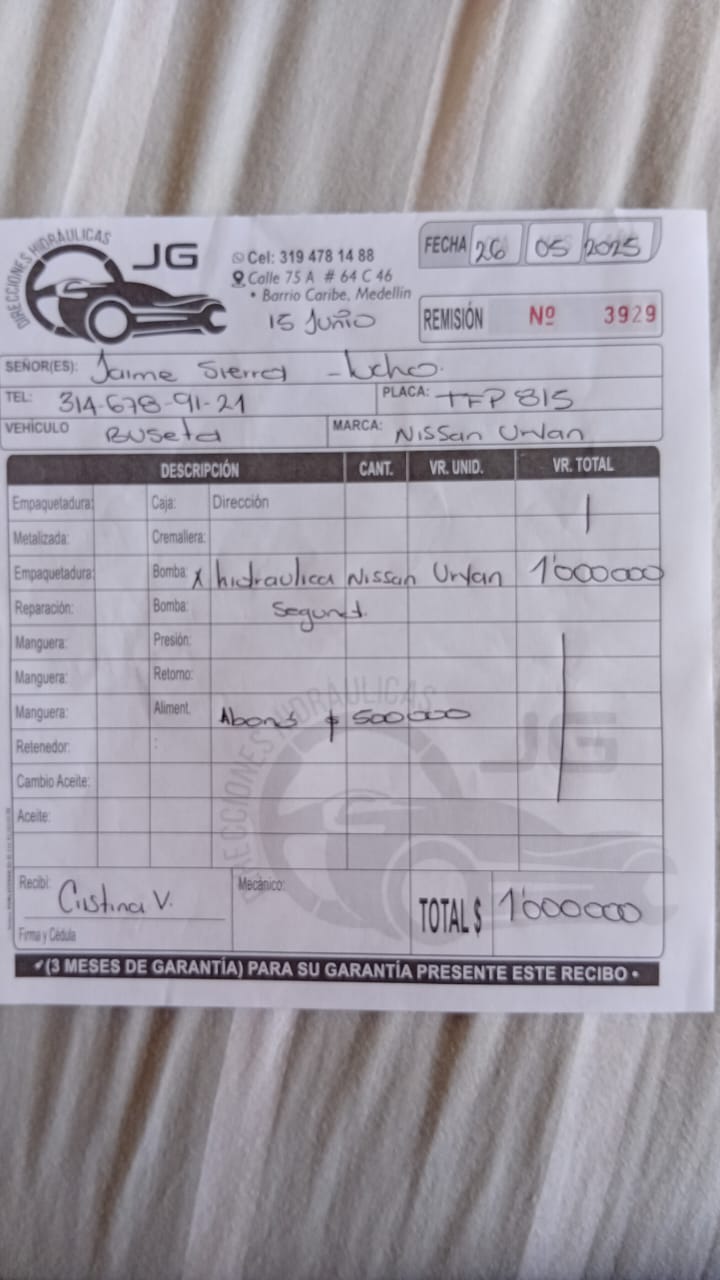 DIRECCIONES HIDRÁULICAS
JG
Cel: 319 478 14 88
Calle 75 A # 64 C 46
• Barrio Caribe, Medellin
15 Junio
FECHA 26 05 2025
REMISIÓN Nº 3929
SEÑOR(ES): Jaime Sierra - Lucho.
TEL: 314-678-91-21 PLACA: TFP 815
VEHÍCULO Buseta MARCA: Nissan Urvan
DESCRIPCIÓN CANT. VR. UNID. VR. TOTAL
Empaquetadura: Caja: Dirección
Metalizada: Cremallera:
Empaquetadura: Bomba: x hidraulica Nissan Urvan 1'000000
Reparación: Bomba: Segunda.
Manguera: Presión:
Manguera: Retorno:
Manguera: Aliment. Abono $ 500000
Retenedor: :
Cambio Aceite:
Aceite:
DIRECCIONES HIDRÁULICAS JG
Recibí: Cristina V. Mecánico: TOTAL $ 1'000000
Firma y Cédula
(3 MESES DE GARANTÍA) PARA SU GARANTÍA PRESENTE ESTE RECIBO •